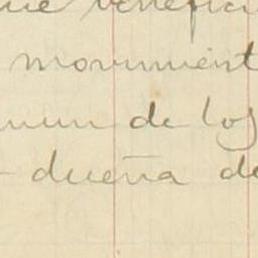 que benefici
movimient
de los
dueña de